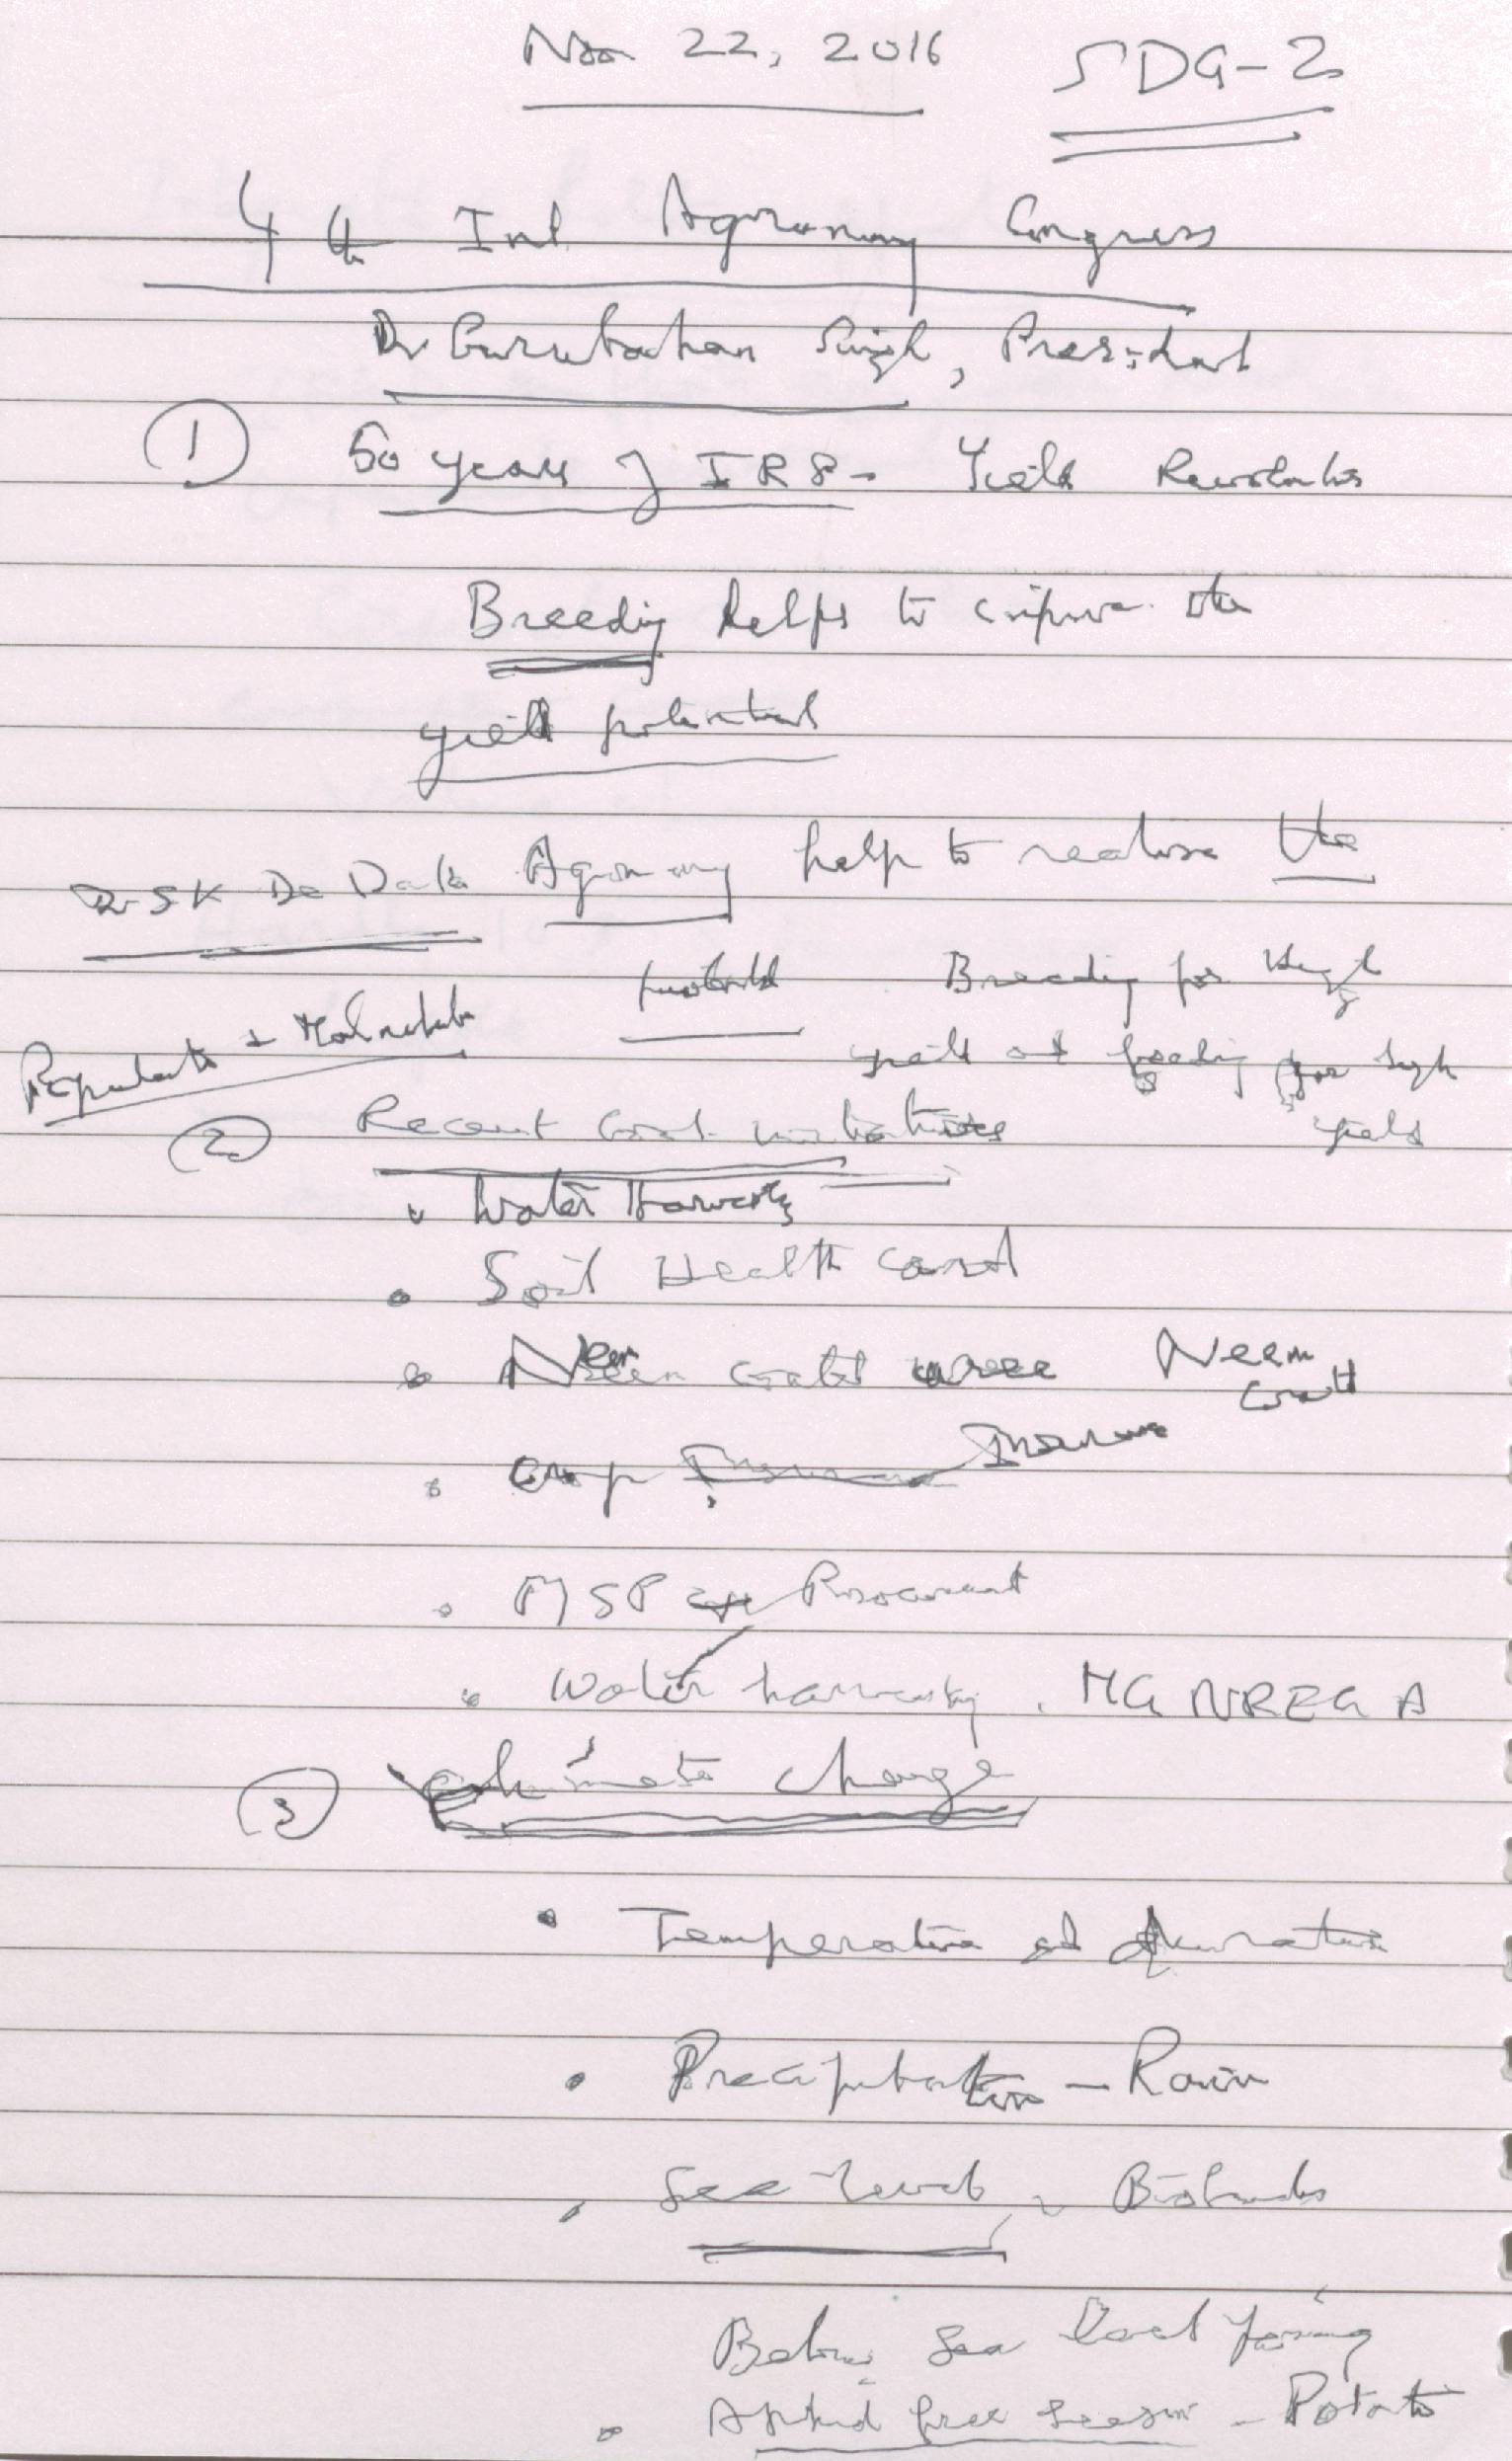 Nov 22, 2016 SDG-2
4th Int Agronomy Congress
Dr Gurubachan Singh, President
① 50 years of IR8 - Yield Revolution
Breeding helps to improve the
yield potential
Dr SK De Datta Agronomy help to realise the
potential Breeding for High
yield and feeding for high
yield
Population + Malnutrition
② Recent Govt. initiatives
Water Harvesting
Soil Health Card
Neem coated urea Neem
coated
Crop Insurance
MSP Procurement
Water harvesting. MGNREGA
③ Climate Change
Temperature and duration
Precipitation - Rain
Sea level
Below Sea level farming
Aphid free season - Potato